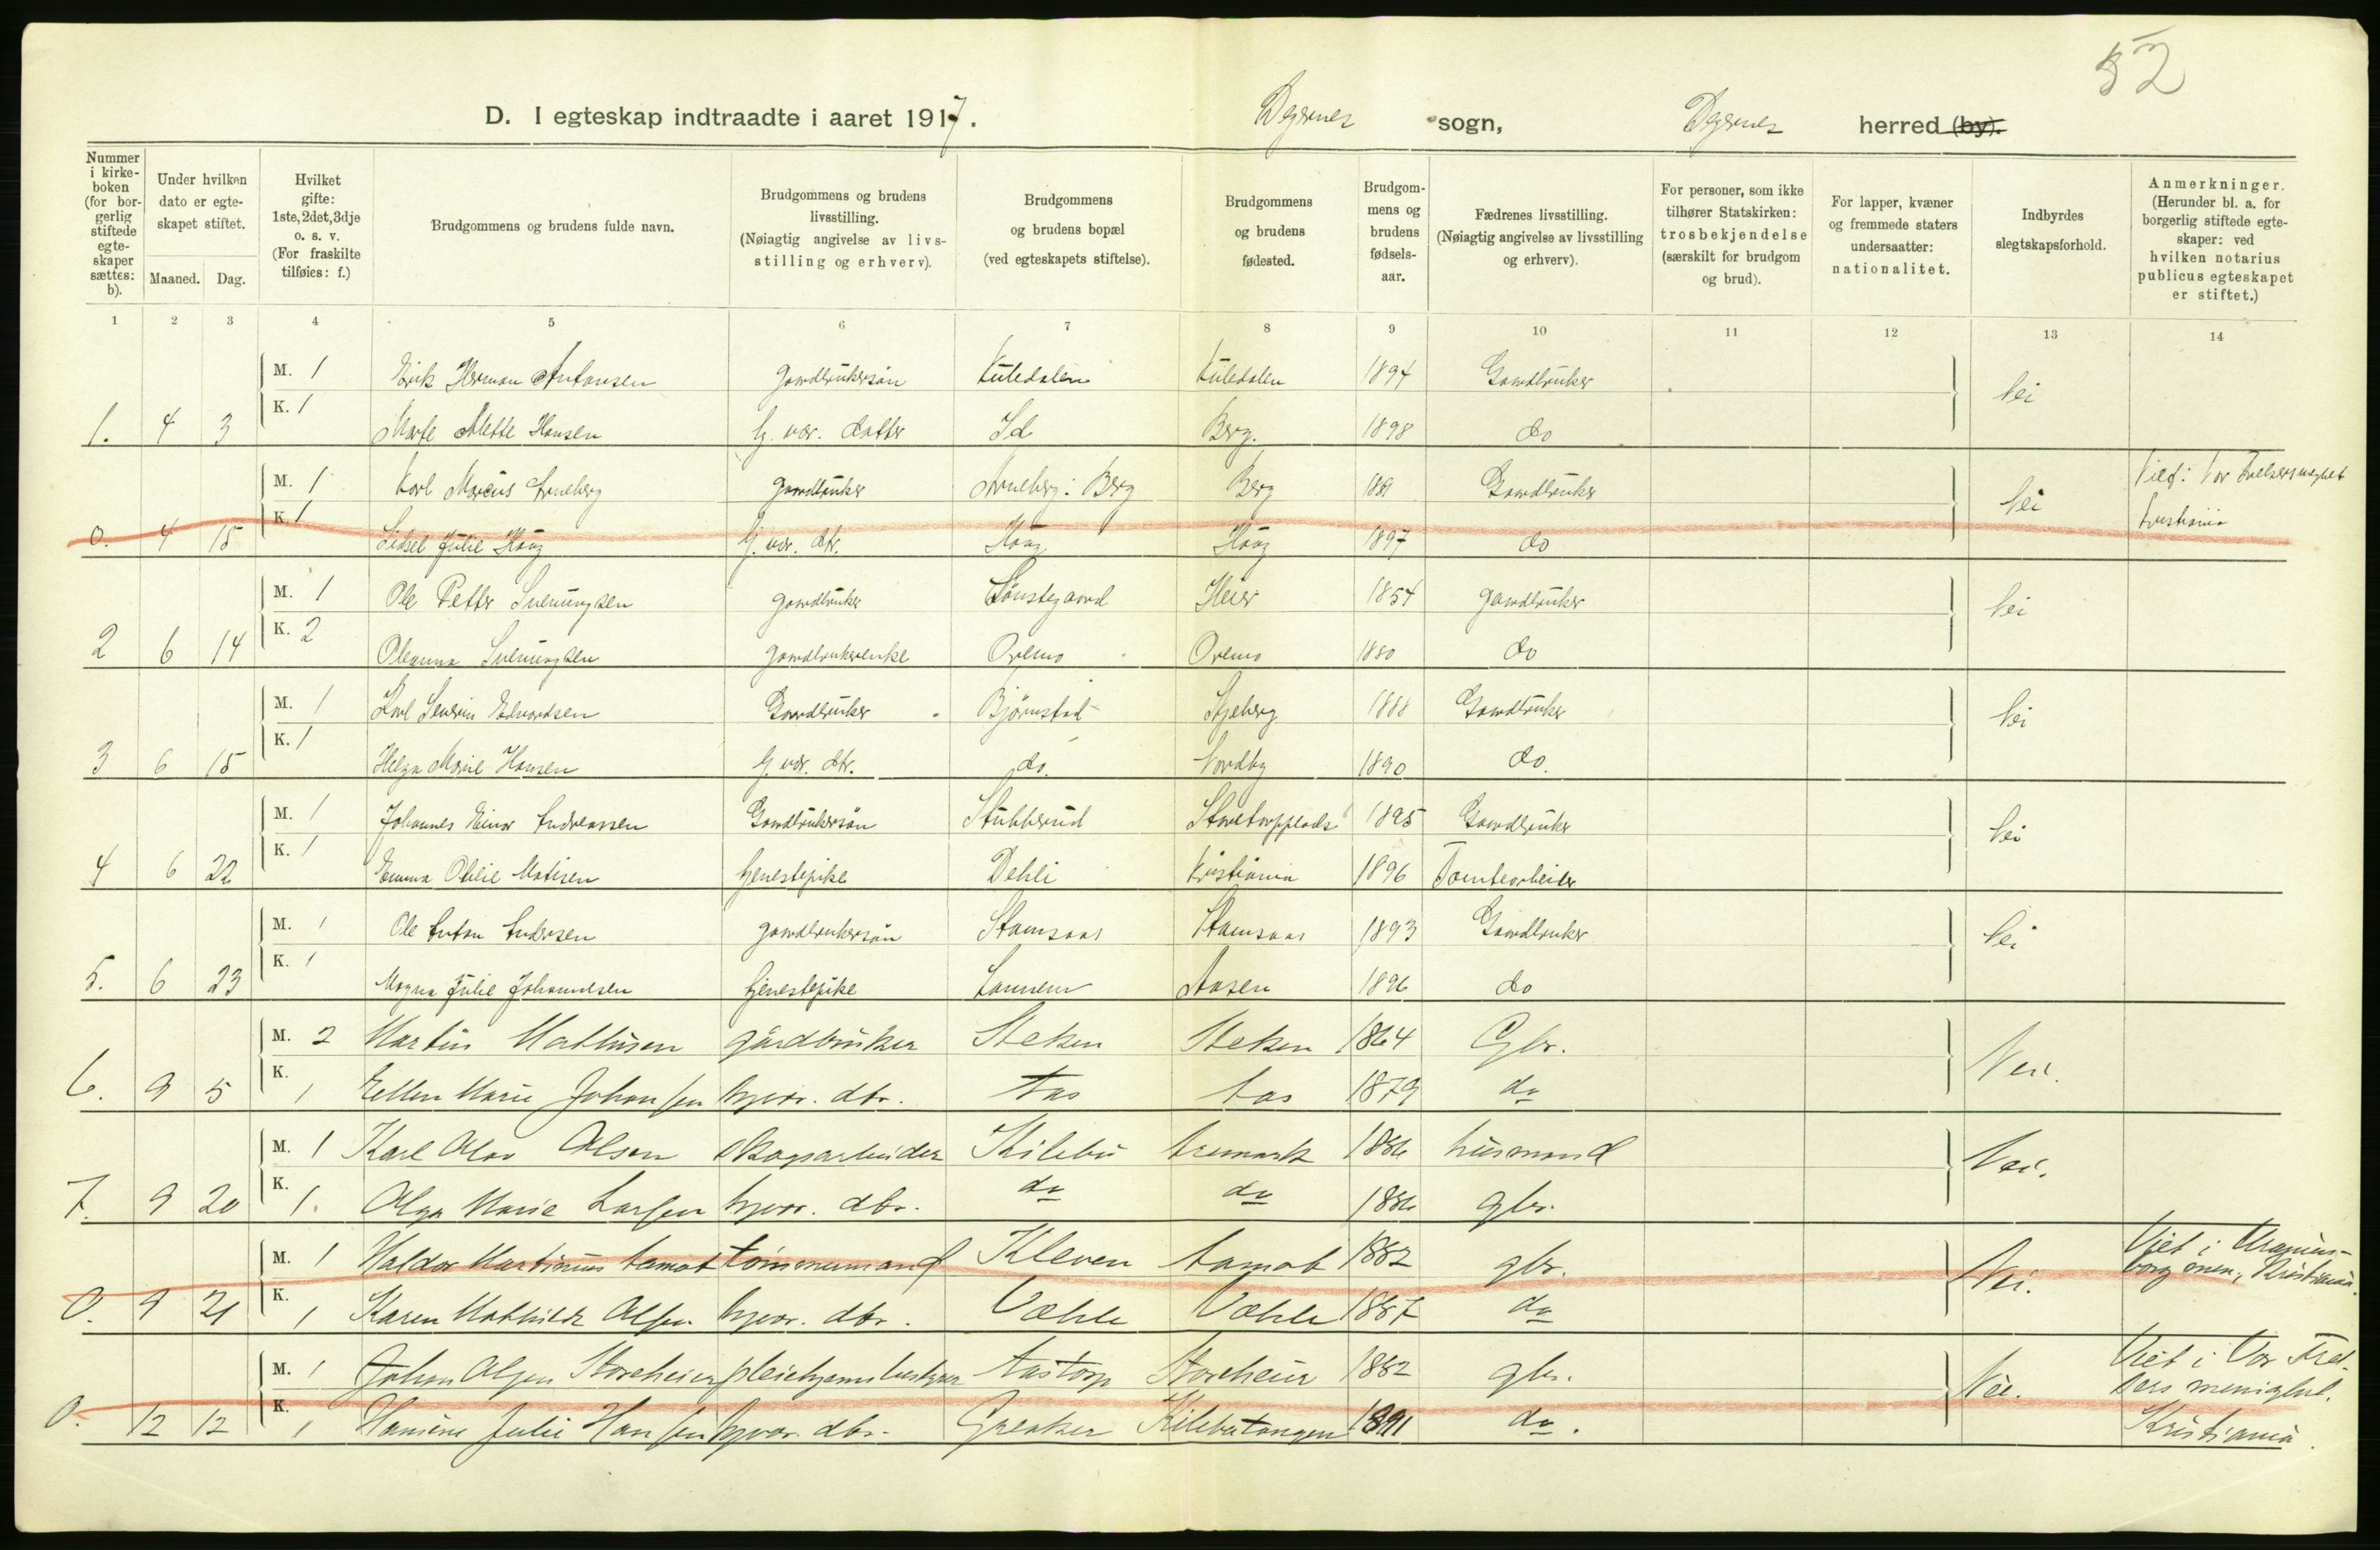 52
D. I egteskap indtraadte i aaret 1917. Degernes sogn, Degernes herred (by).
Nummer i kirke-boken (for bor-gerlig stiftede egte-skaper sættes: b).
Under hvilken dato er egte-skapet stiftet.
Maaned. Dag.
Hvilket gifte: 1ste, 2det, 3dje o. s. v. (For fraskilte tilføies: f.)
Brudgommens og brudens fulde navn.
Brudgommens og brudens livsstilling. (Nøiagtig angivelse av livs-stilling og erhverv).
Brudgommens og brudens bopæl (ved egteskapets stiftelse).
Brudgommens og brudens fødested.
Brudgom-mens og brudens fødsels-aar.
Fædrenes livsstilling. (Nøiagtig angivelse av livsstilling og erhverv).
For personer, som ikke tilhører Statskirken: trosbekjendelse (særskilt for brudgom og brud).
For lapper, kvæner og fremmede staters undersaatter: nationalitet.
Indbyrdes slegtskapsforhold.
Anmerkninger. (Herunder bl. a. for borgerlig stiftede egte-skaper: ved hvilken notarius publicus egteskapet er stiftet.)
1 2 3 4 5 6 7 8 9 10 11 12 13 14
M. 1 Erik Herman Antonsen Gaardbrukersøn Kuledalen Kuledalen 1894 Gaardbruker Nei
1. 4 3 K. 1 Marte Mette Hansen Hj. vær. datter Id Berg. 1898 do
M. 1 Karl Marius Arneberg gaardbruker Arneberg i Berg Berg 1889 Gaardbruker Nei Viet: Vor Frelsersmenighet
0. 4 15 K. 1 Sidsel Julie Haug Hj. vær. dtr. Haug Haug 1897 do Kristiania
M. 1 Ole Petter Svenungsen gaardbruker Tønstegaard Heier 1854 gaardbruker Nei
2 6 14 K. 2 Oleanna Svenungsen gaardbrukerenke Oremo Oremo 1850 do
M. 1 Karl Severin Edvardsen Gaardbruker Bjørnstad Skjeberg 1888 Gaardbruker Nei
3 6 15 K. 1 Helga Marie Hansen Hj. vær. dtr. do. Nordby 1890 do.
M. 1 Johannes Einar Andreassen Gaardbrukersøn Stubberud Storetorpplads 1895 Gaardbruker Nei
4 6 22 K. 1 Emma Otilie Matisen tjenestepike Dehli Kristiania 1896 Tomtearbeider
M. 1 Ole Anton Andersen gaardbrukersøn Stamsaas Stamsaas 1893 Gaardbruker Nei
5. 6 23 K. 1 Magna Julie Johannesen tjenestepike Lannem Aasen 1896 do
M. 2 Martin Mathisen gårdbruker Steken Steken 1864 Gbr. Nei.
6. 9 5 K. 1 Ellen Marie Johansen hjvær. dtr. Aas Aas 1879 do
M. 1 Karl Olav Olsen skogsarbeider Kilebu Aremark 1886 husmand Nei.
7. 9 20 K. 1. Olga Marie Larsen hjvær. dtr. do do 1886 gbr.
M. 1 Haldor Martinius Aamot tømmermand Kleven Aamot 1882 gbr. Nei. Viet i Uraniens-
0. 9 21 K. 1 Karen Mathilde Olsen hjvær. dtr. Væhle Væhle 1887 do borg men., Kristiania.
M. 1 Johan Olsen Storeheier pleiehjemsbestyrer Aastorp Storeheier 1882 gbr. Nei. Viet i Vor Frel-
0. 12 12 K. 1 Hansine Julie Hansen hjvær. dtr. Greaker Kilebutangen 1891 do. sers menighet.
Kristiania.